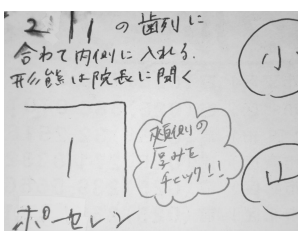 2 1|1 の歯列に
合わて内側に入れる.
形態は院長に聞く
小
1
頬側の
厚みを
チェック!!
山
ポーセレン